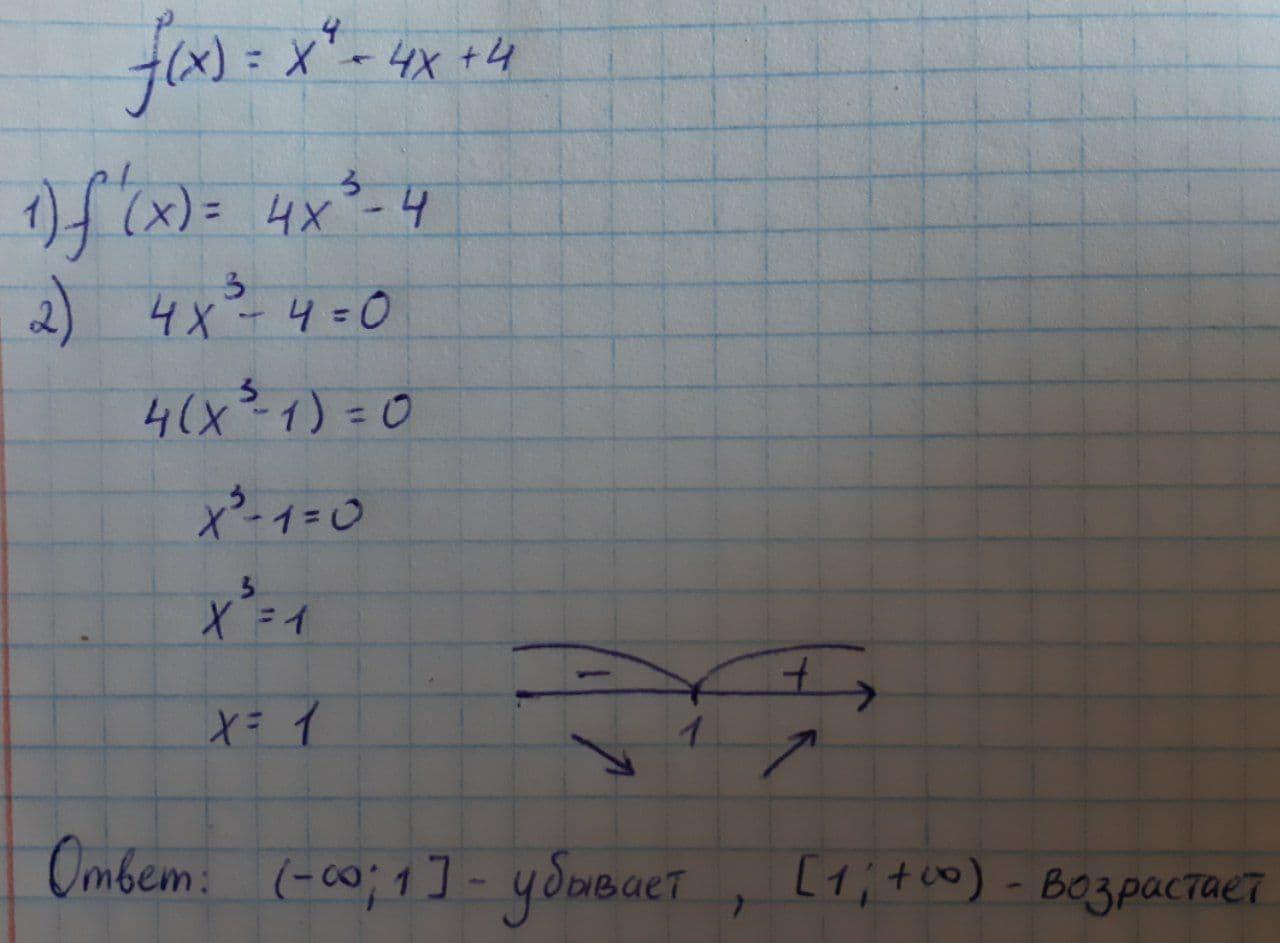 f(x) = x⁴ - 4x + 4
1) f'(x) = 4x³ - 4
2) 4x³ - 4 = 0
4(x³ - 1) = 0
x³ - 1 = 0
x³ = 1
- +
x = 1
1
Ответ: (-∞; 1] - убывает, [1; +∞) - возрастает